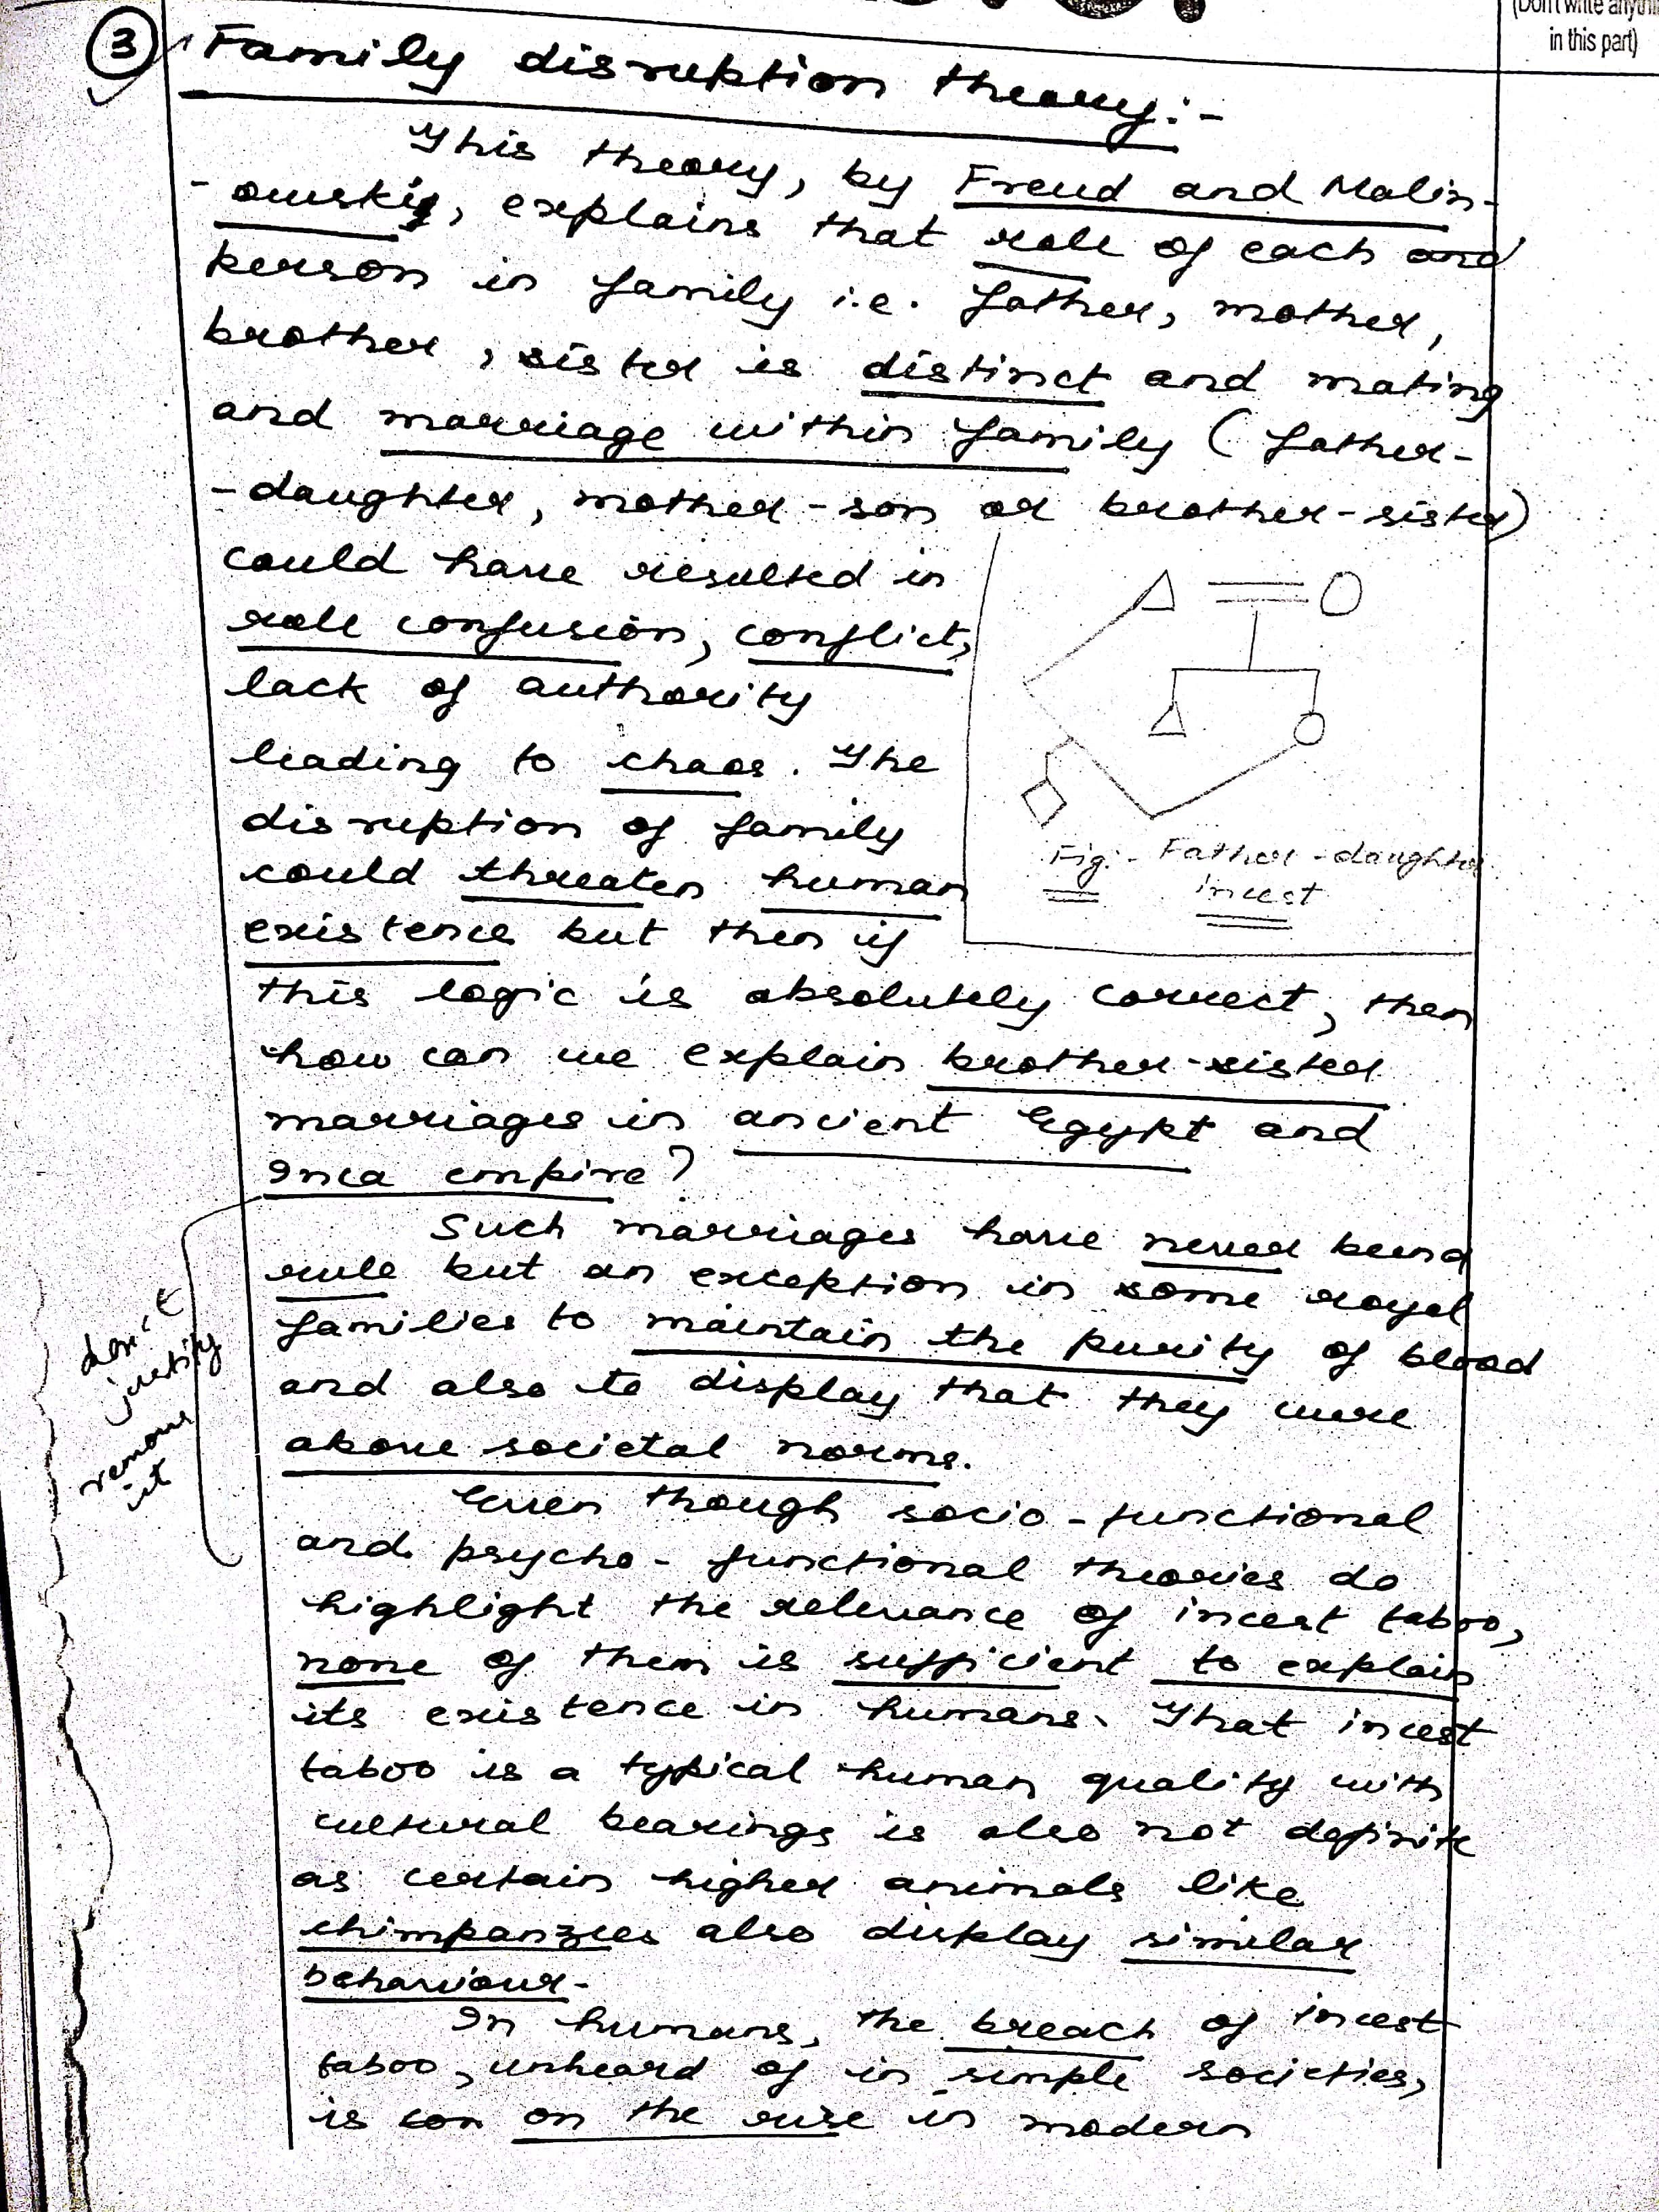 (Don't write anything
in this part)
3 Family disruption theory:-
This theory, by Freud and Malin-
-owski, explains that role of each and
person in family i.e. father, mother,
brother, sister is distinct and mating
and marriage within family (father-
-daughter, mother-son or brother-sister)
could have resulted in
role confusion, conflict,
lack of authority
leading to chaos. The
disruption of family
could threaten human
existence but then if
Fig:- Father-daughter
incest
this logic is absolutely correct, then
how can we explain brother-sister
marriages in ancient Egypt and
Inca empire?
Such marriages have never been a
rule but an exception in some royal
families to maintain the purity of blood
and also to display that they were
above societal norms.
don't
justify
remove
it
Even though socio-functional
and psycho-functional theories do
highlight the relevance of incest taboo,
none of them is sufficient to explain
its existence in humans. That incest
taboo is a typical human quality with
cultural bearings is also not definite
as certain higher animals like
chimpanzees also display similar
behaviour.
In humans, the breach of incest
taboo, unheard of in simple societies,
is on the rise in modern